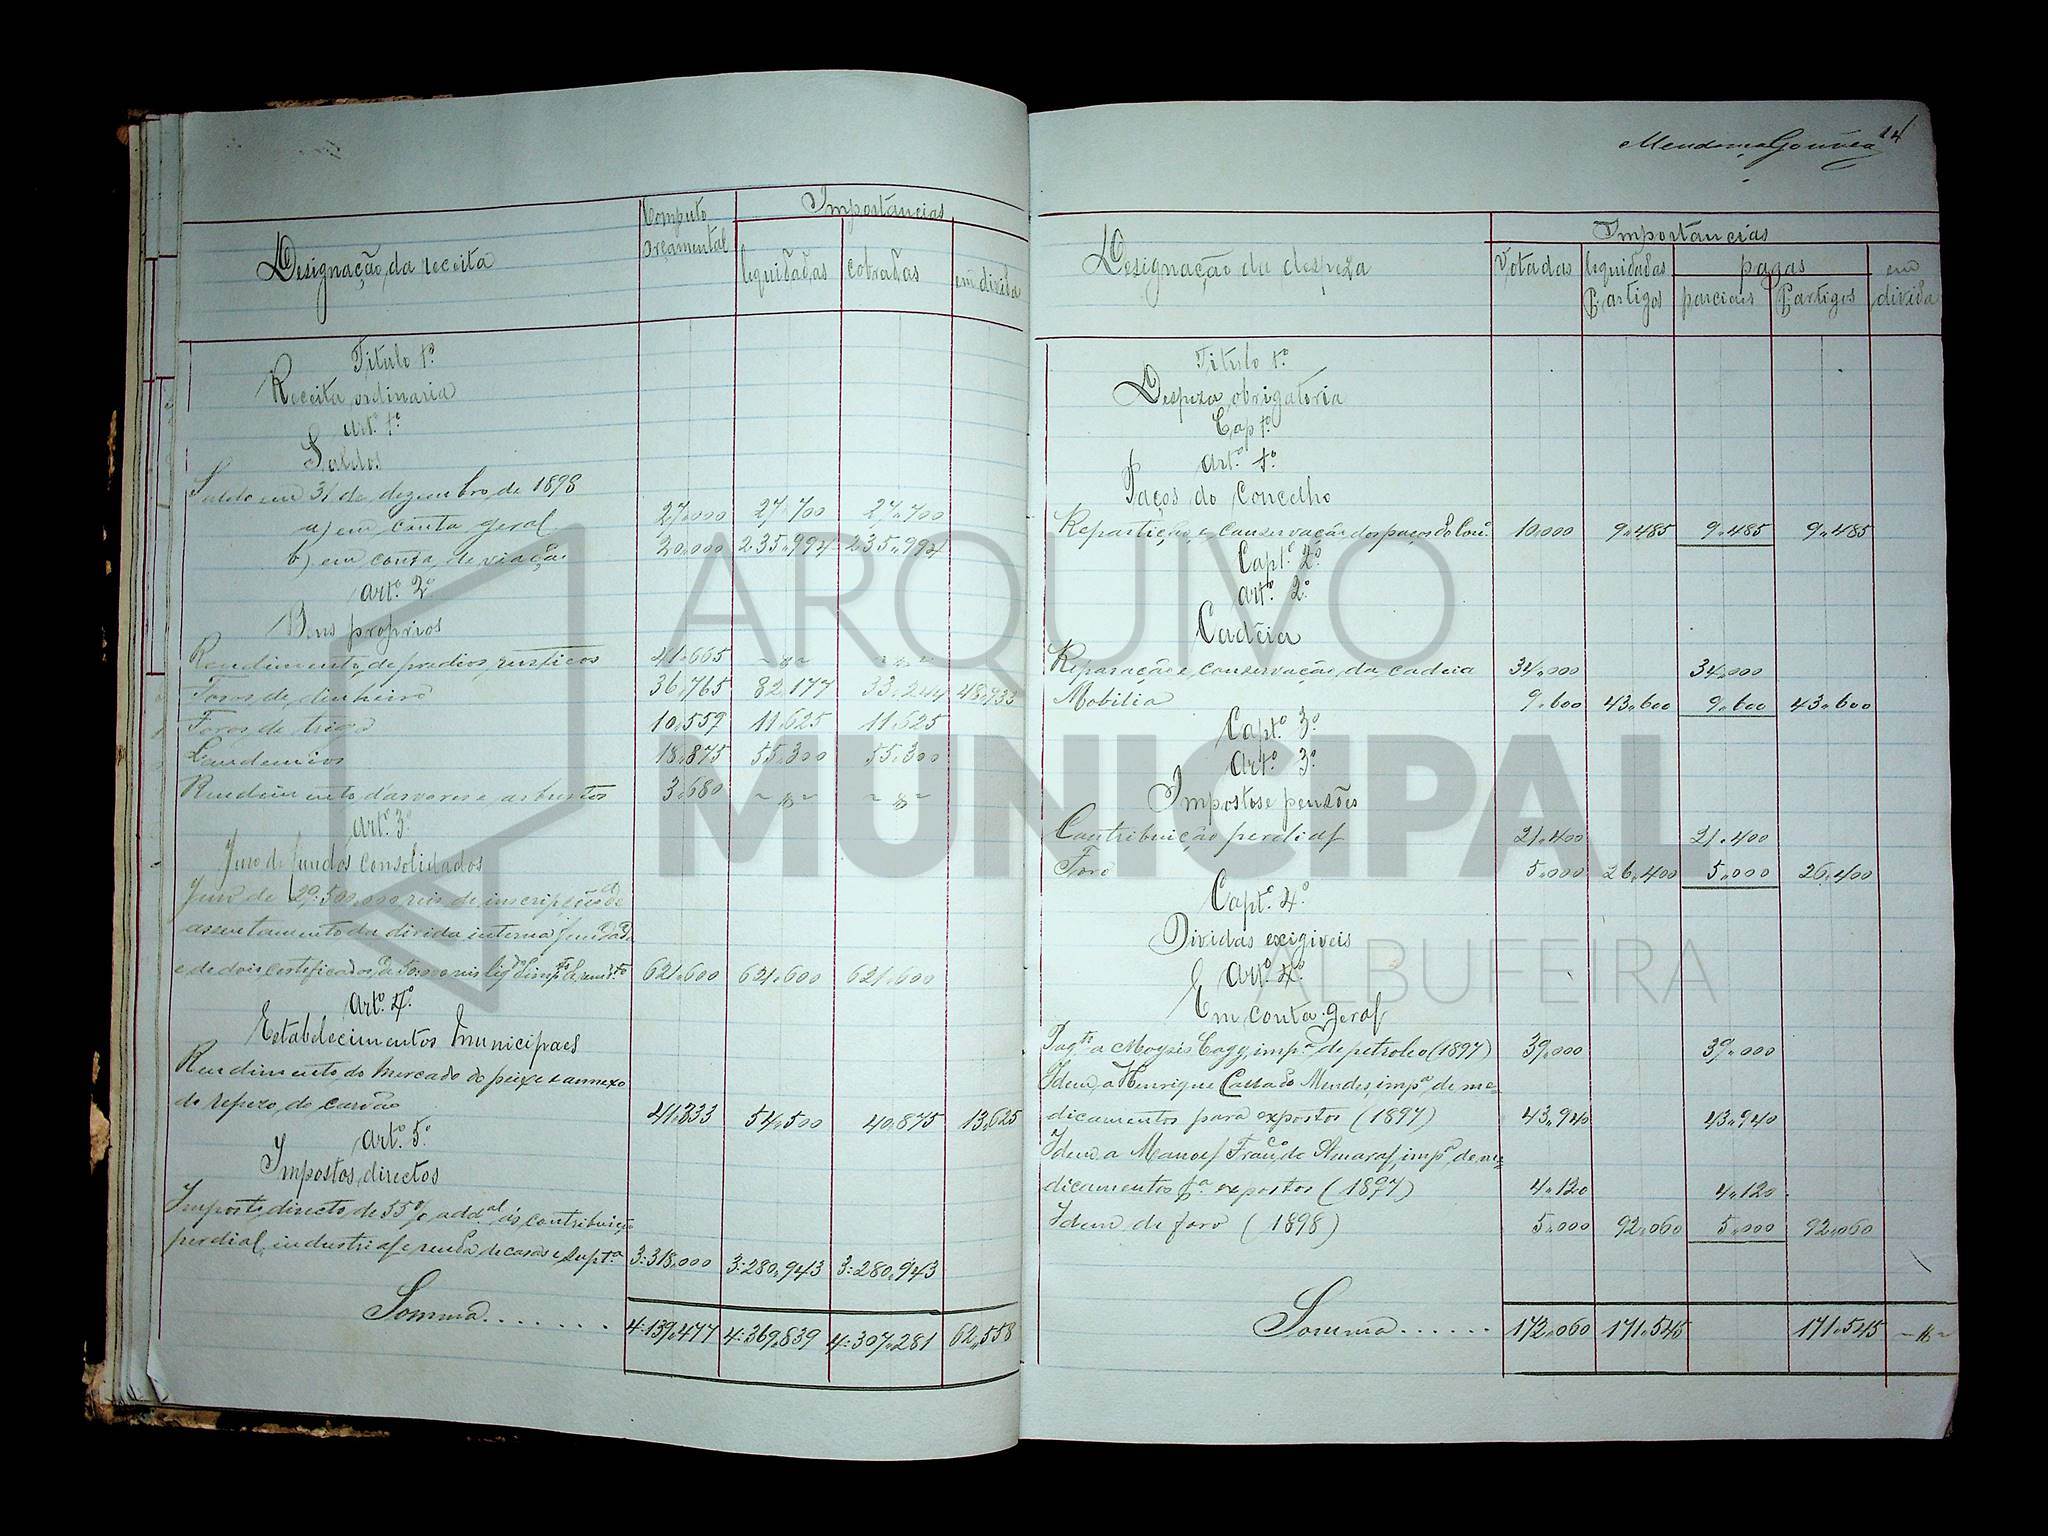 Computo Importancias
Designação da receita orçamental liquidadas cobradas em divida
Titulo 1º
Receita ordinaria
Artº 1º
Saldos
Saldo em 31 de dezembro de 1898
a) em conta geral 27,000 27,700 27,700
b) em conta de viação 20,000 235,994 235,994
Artº 2º
Bens proprios
Rendimento de predios rusticos 41,665 -"- -"-
Foros de dinheiro 36,765 82,177 33,244 48,933
Foros de trigo 10,559 11,625 11,625
Laudemios 18,875 55,300 55,300
Rendimento d'arvores e arbustos 3,680 -"- -"-
Artº 3º
Juro de fundos consolidados
Juro de 29:500,000 reis de inscripções de
assentamento da divida interna fundada
e de dois certificados de 621,600 621,600 621,600
Artº 4º
Estabelecimentos municipaes
Rendimento do mercado do peixe e annexo
do repezo do carvão 41,333 54,500 40,875 13,625
Artº 5º
Impostos directos
Imposto directo de 55% addal ás contribuição
predial, industrial e renda de casas e supta 3:318,000 3:280,943 3:280,943
Somma....... 4:139,477 4:369,839 4:307,281 62,558
Mendonça Gouvea 14
Importancias
Designação da despeza Votadas liquidadas P. artigos pagas parciais P. artigos em divida
Titulo 1º
Despeza obrigatoria
Cap 1º
Artº 1º
Paços do Concelho
Repartição e conservação dos paços do Conº 10,000 9,485 9,485 9,485
Captº 2º
Artº 2º
Cadeia
Reparação e conservação da cadeia 34,000 34,000
Mobilia 9,600 43,600 9,600 43,600
Captº 3º
Artº 3º
Impostos e pensões
Contribuição predial 21,400 21,400
Foro 5,000 26,400 5,000 26,400
Captº 4º
Dividas exigiveis
Artº 4º
Em conta geral
Pagto a Moysés Cagy, impª de petroleo (1897) 39,000 39,000
Idem, a Henrique Callado Mendes, impª de me-
dicamentos para expostos (1897) 43,940 43,940
Idem a Manoel Francº de Amaral, impª de me-
dicamentos pª expostos (1897) 4,120 4,120
Idem de foro (1898) 5,000 92,060 5,000 92,060
Somma...... 172,060 171,545 171,545 -"-
ARQUIVO
MUNICIPAL
ALBUFEIRA